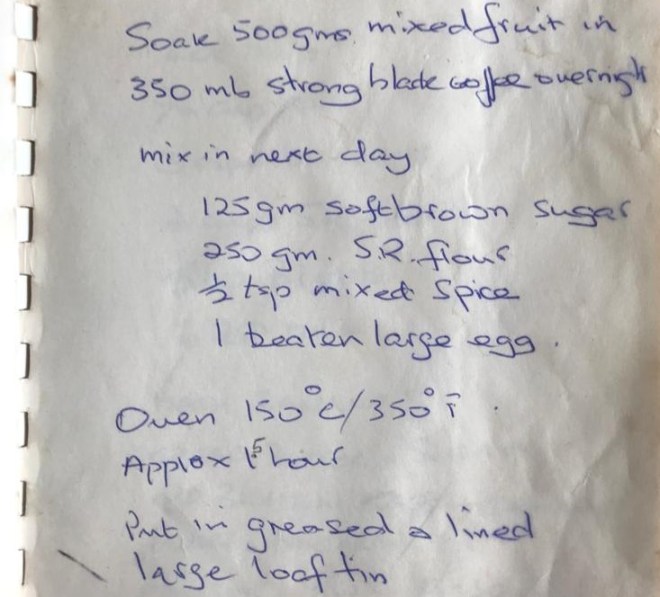 Soak 500gms mixed fruit in
350 mls strong black coffee overnigh
mix in next day
125gm soft brown sugar
250 gm. S.R. flour
½ tsp mixed spice
1 beaten large egg.
Oven 150°C/350°F.
Approx 1 hour
Put in greased & lined
large loaf tin